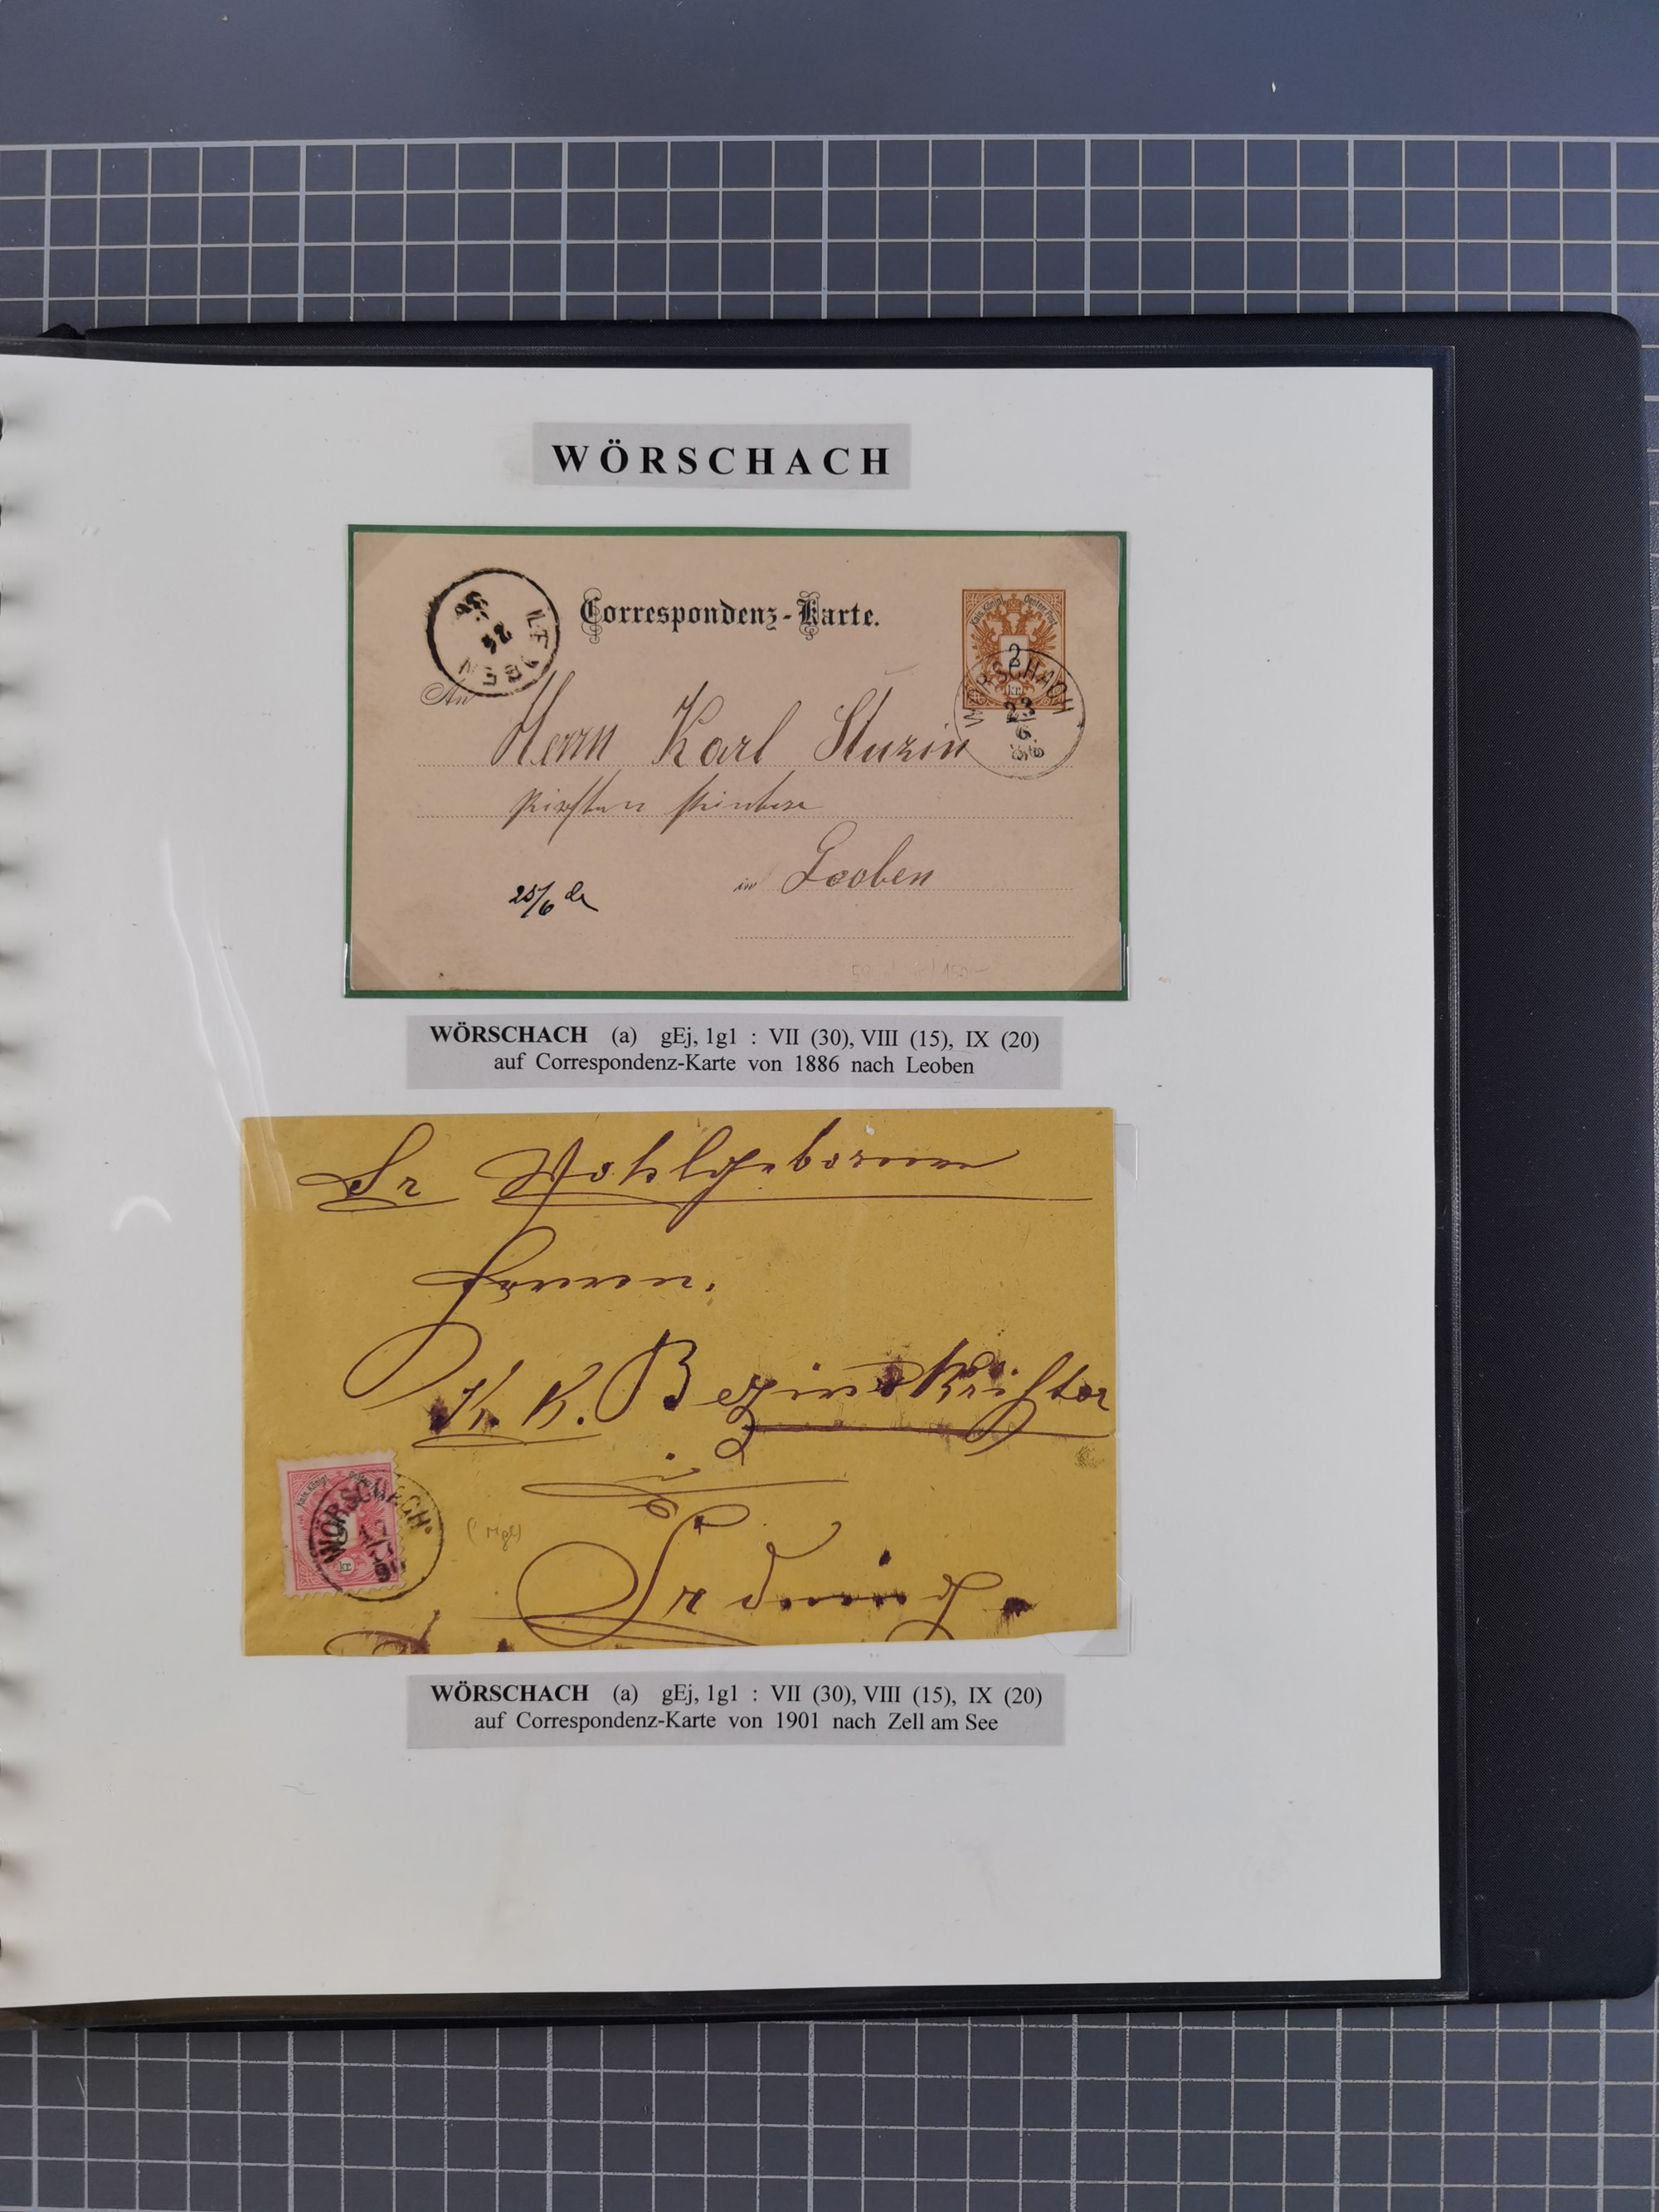 WÖRSCHACH
Correspondenz-Karte.
Kais. Königl. Oesterr. Post
2
kr.
LEOBEN
24
86
WÖRSCHACH
23
6
86
An
Herrn Karl
in Leoben
25/6
WÖRSCHACH (a) gEj, 1g1 : VII (30), VIII (15), IX (20)
auf Correspondenz-Karte von 1886 nach Leoben
Sr Wohlgeboren
Herrn.
K. K. Bezirks Richter
in
Irdning.
WÖRSCHACH
kr
WÖRSCHACH (a) gEj, 1g1 : VII (30), VIII (15), IX (20)
auf Correspondenz-Karte von 1901 nach Zell am See